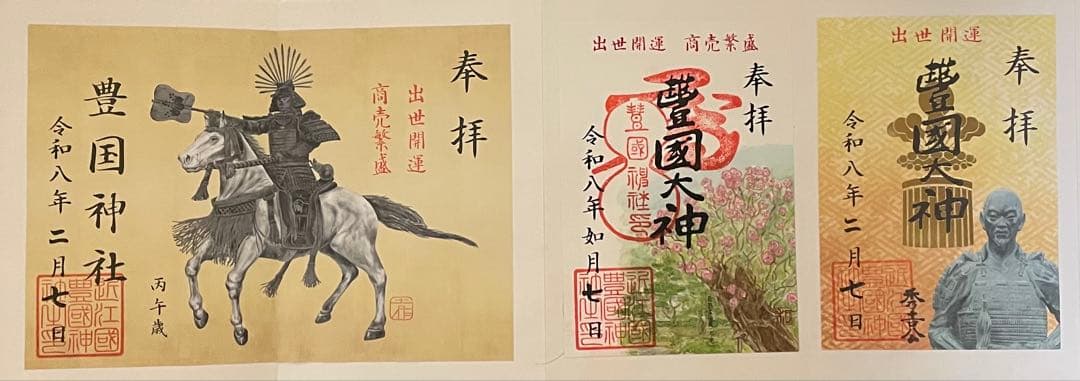 奉拝
出世開運
商売繁盛
豊国神社
令和八年二月七日
丙午歳
近江國
豊國神
社之印
出世開運 商売繁盛
奉拝
豐國大神
豊國神社印
令和八年如月七日
近江國
豊國神
社之印
出世開運
奉拝
豐國大神
令和八年二月七日
近江國
豊國神
社之印